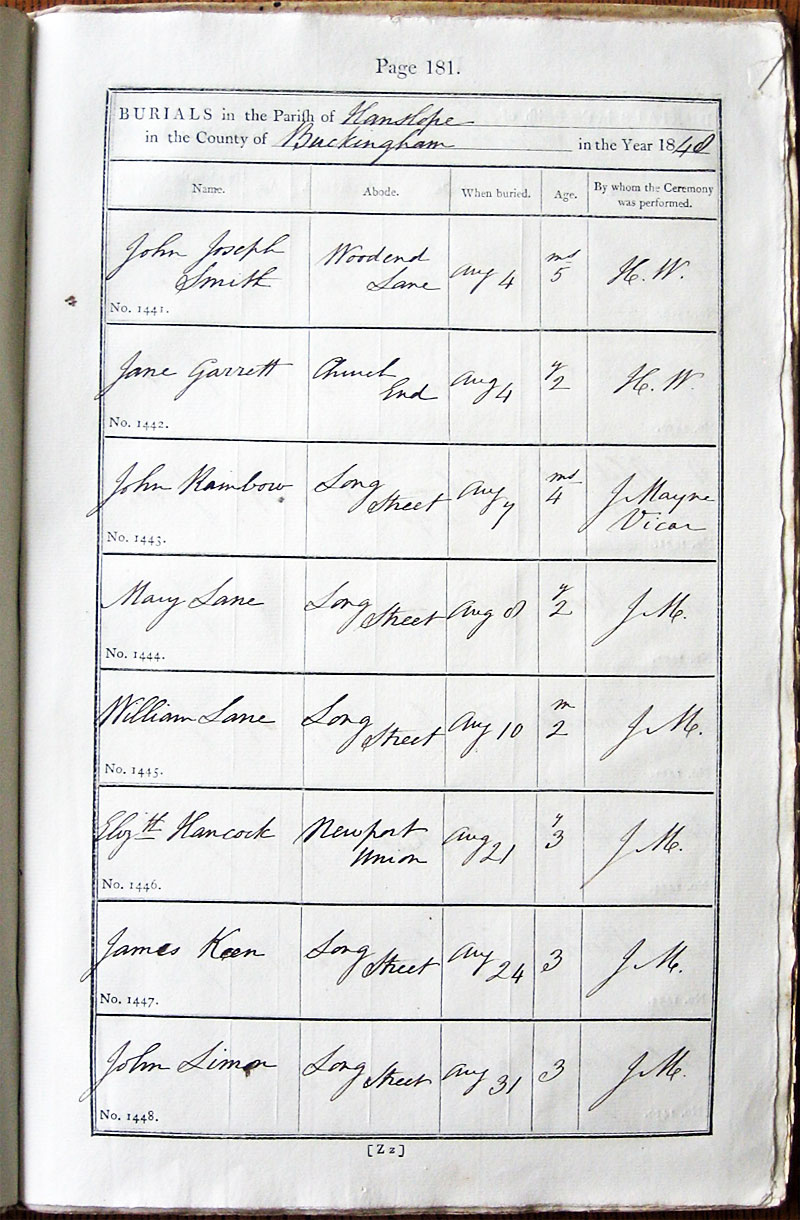 Page 181.
BURIALS in the Parish of Hanslope
in the County of Buckingham in the Year 1848
Name. Abode. When buried. Age. By whom the Ceremony was performed.
John Joseph Smith Woodend Lane Aug 4 ms 5 H. W.
No. 1441.
Jane Garrett Church End Aug 4 y 2 H. W.
No. 1442.
John Rainbow Long Street Aug 7 ms 4 J Mayne Vicar
No. 1443.
Mary Lane Long Street Aug 8 y 2 J. M.
No. 1444.
William Lane Long Street Aug 10 m 2 J. M.
No. 1445.
Elizth Hancock Newport Union Aug 21 y 3 J. M.
No. 1446.
James Keen Long Street Aug 24 3 J. M.
No. 1447.
John Simon Long Street Aug 31 3 J. M.
No. 1448.
[Z z]